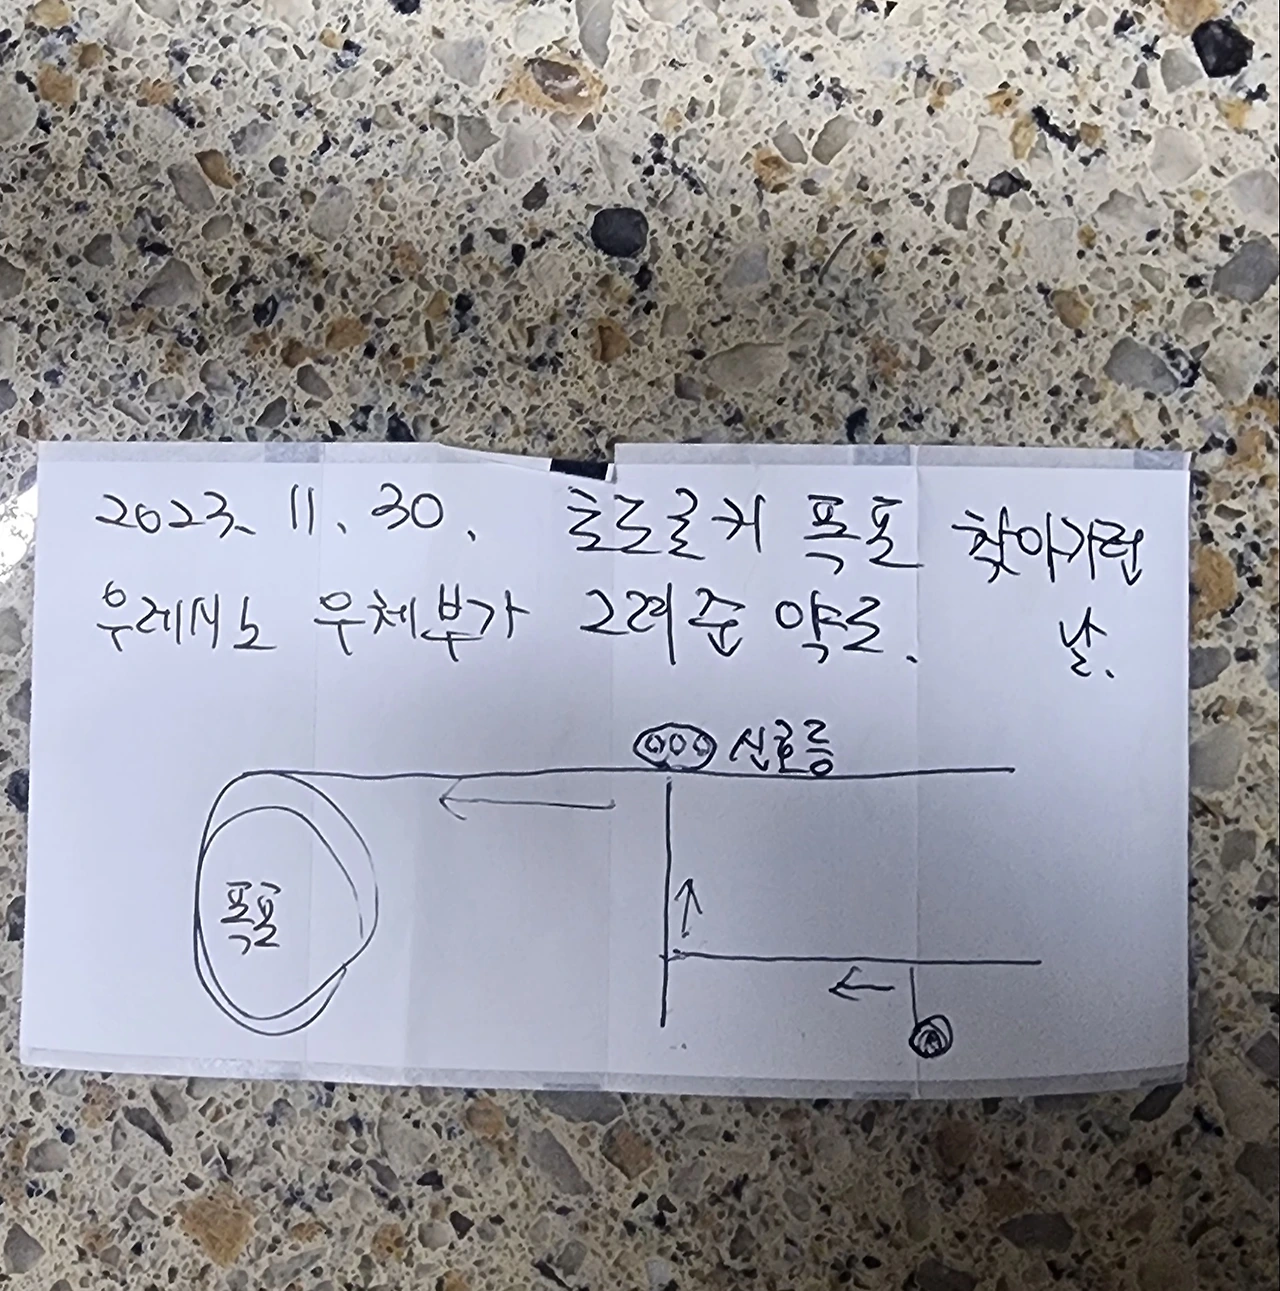 2023. 11. 30. 흐도로키 폭포 찾아가던
우레시노 우체부가 그려준 약도. 날.
신호등
폭포